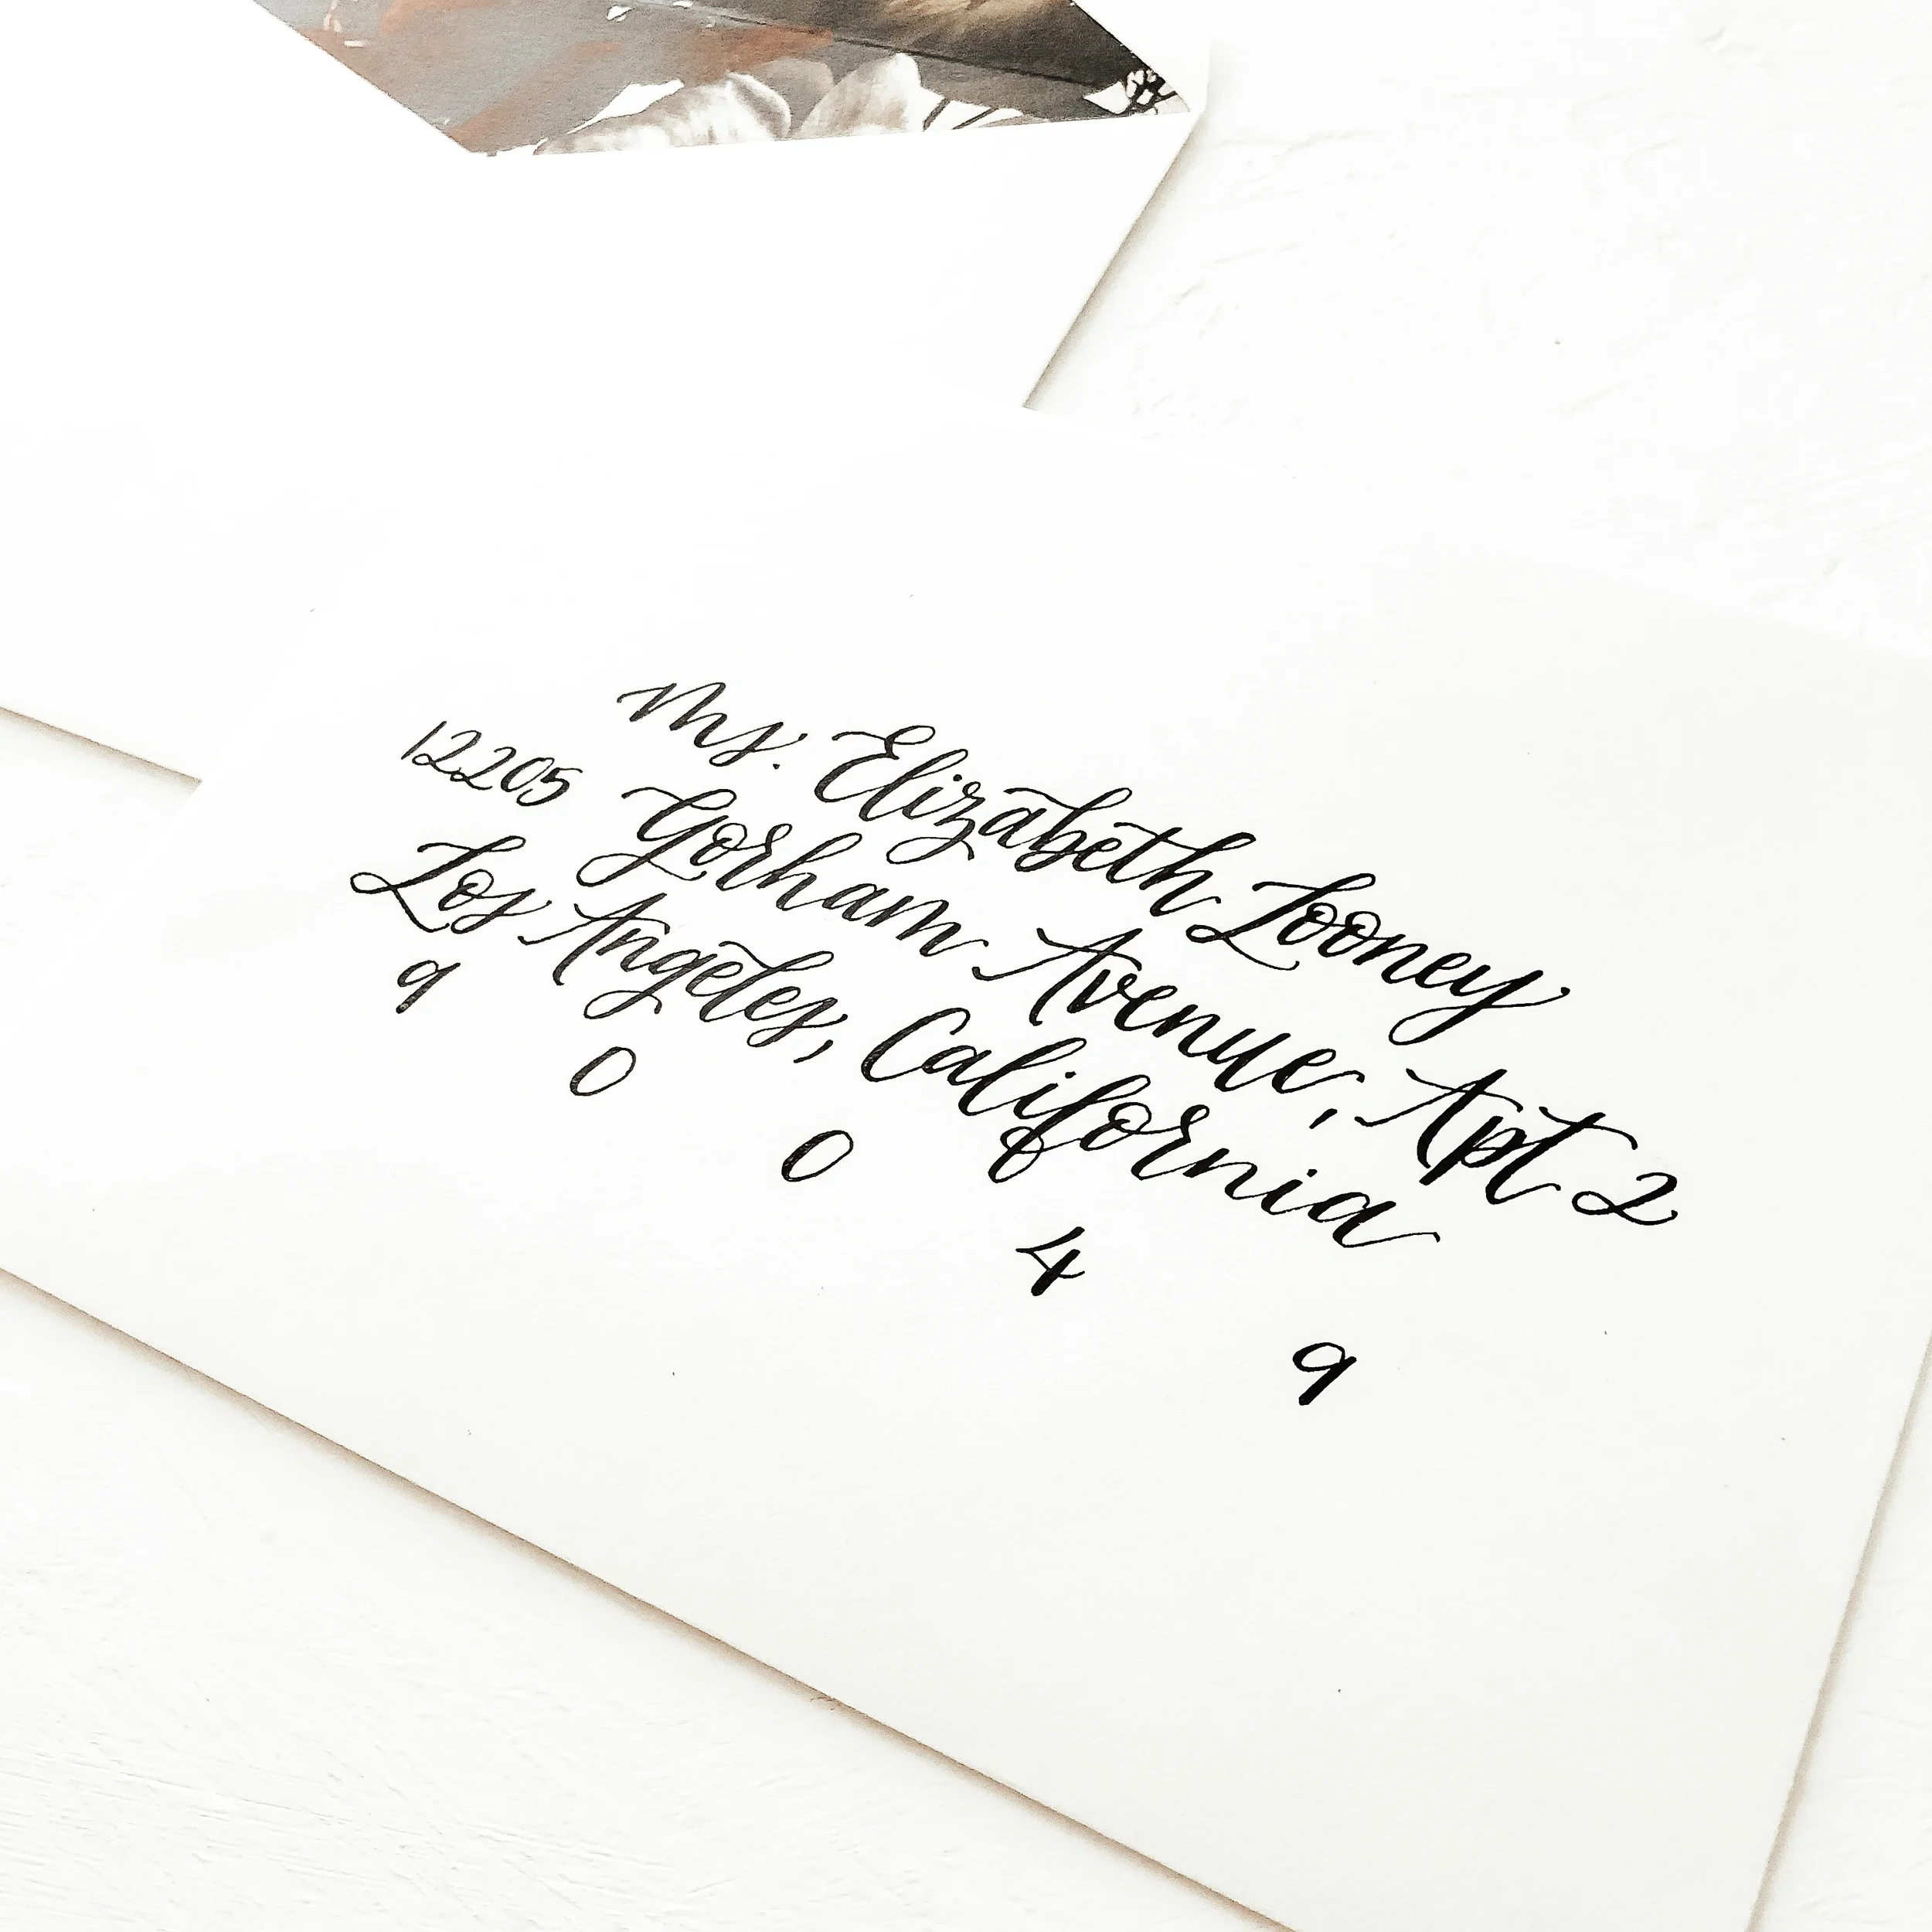 Ms. Elizabeth Looney
12205 Gorham Avenue, Apt 2
Los Angeles, California
9 0 0 4 9